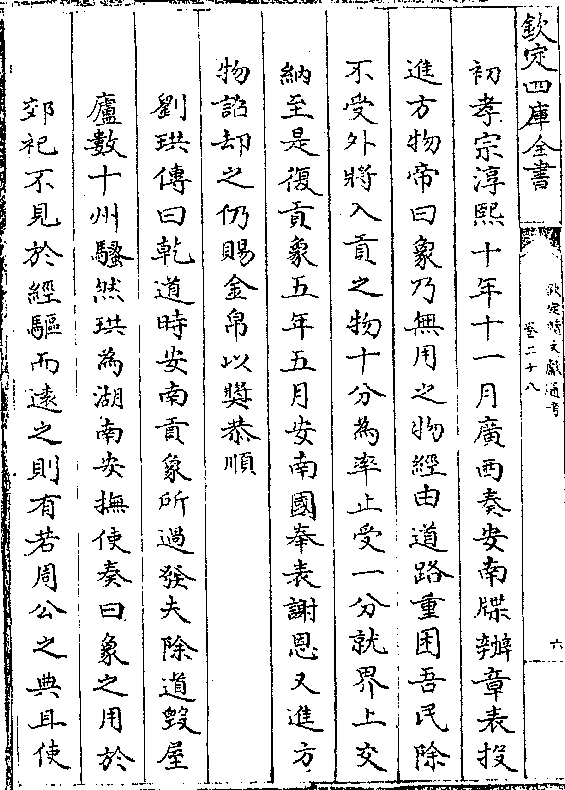 欽定四庫全書
欽定續文獻通考
卷二十八
六
初孝宗淳熙十年十一月廣西奏安南牒辦章表投
進方物帝曰象乃無用之物經由道路重困吾民除
不受外將入貢之物十分為率止受一分就界上交
納至是復貢象五年五月安南國奉表謝恩又進方
物詔却之仍賜金帛以奬恭順
劉珙傳曰乾道時安南貢象所過發夫除道毀屋
廬數十州騷然珙為湖南安撫使奏曰象之用於
郊祀不見於經驅而逺之則有若周公之典且使